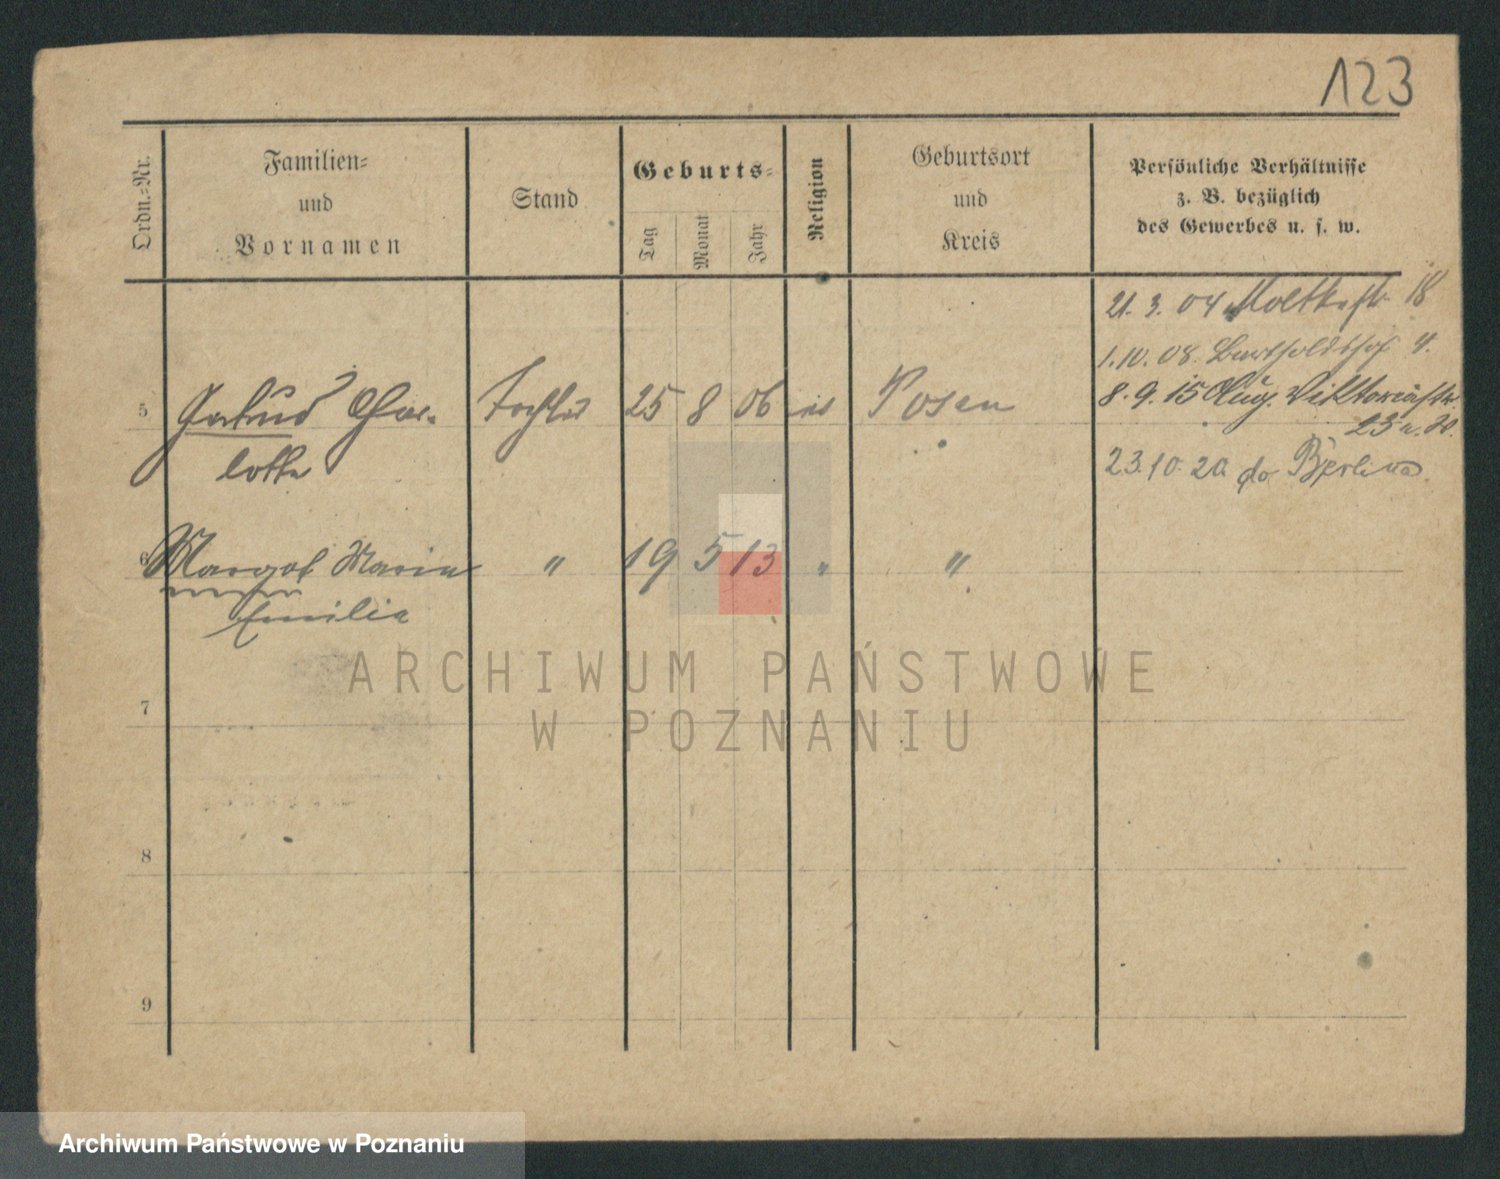 123
Ordn.=Nr.
Familien=
und
Vornamen
Stand
Geburts=
Tag
Monat
Jahr
Religion
Geburtsort
und
Kreis
Persönliche Verhältnisse
z. B. bezüglich
des Gewerbes u. s. w.
21. 3. 04 Moltkestr. 18
1. 10. 08. Bertholdshof 4.
5 Gertrud Char- Tochter 25 8 06 Posen 8. 9. 15 Aug. Viktoriastr.
lotte
23
23. 10. 20 do Berlina
6 Margot Maria " 19 5 13 " "
Emilie
7
8
9
ARCHIWUM PAŃSTWOWE
W POZNANIU
Archiwum Państwowe w Poznaniu